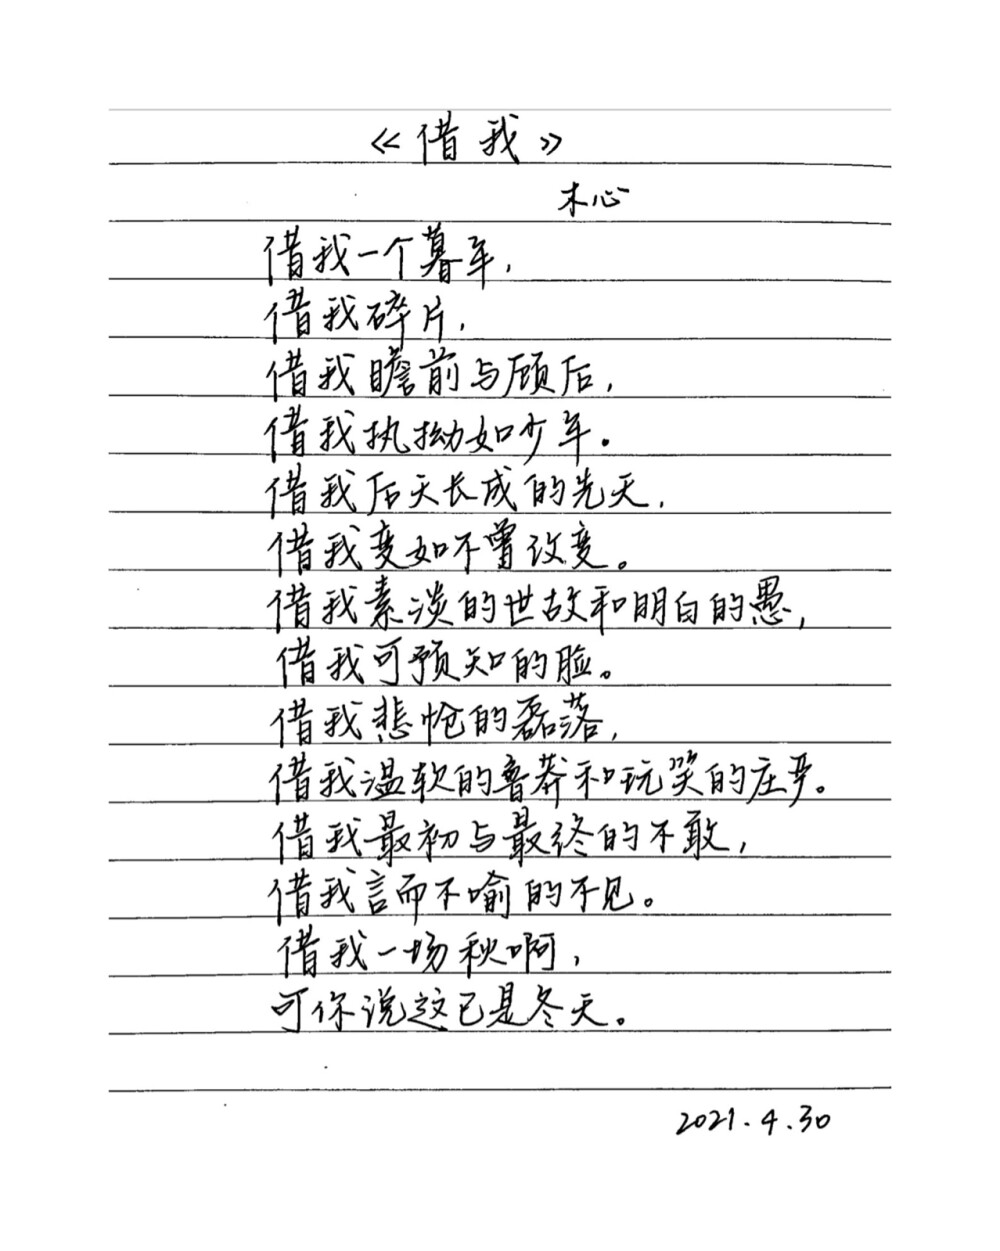 《借我》
木心
借我一个暮年,
借我碎片,
借我瞻前与顾后,
借我执拗如少年.
借我后天长成的先天,
借我变如不曾改变。
借我素淡的世故和明白的愚,
借我可预知的脸。
借我悲怆的磊落,
借我温软的鲁莽和玩笑的庄严。
借我最初与最终的不敢,
借我言而不喻的不见。
借我一场秋啊,
可你说这已是冬天。
2021.4.30